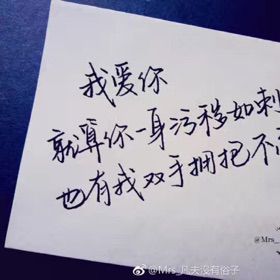 我爱你
就算你一身污秽如刺
也有我双手拥抱不
@Mrs_
@Mrs_凡夫没有俗子